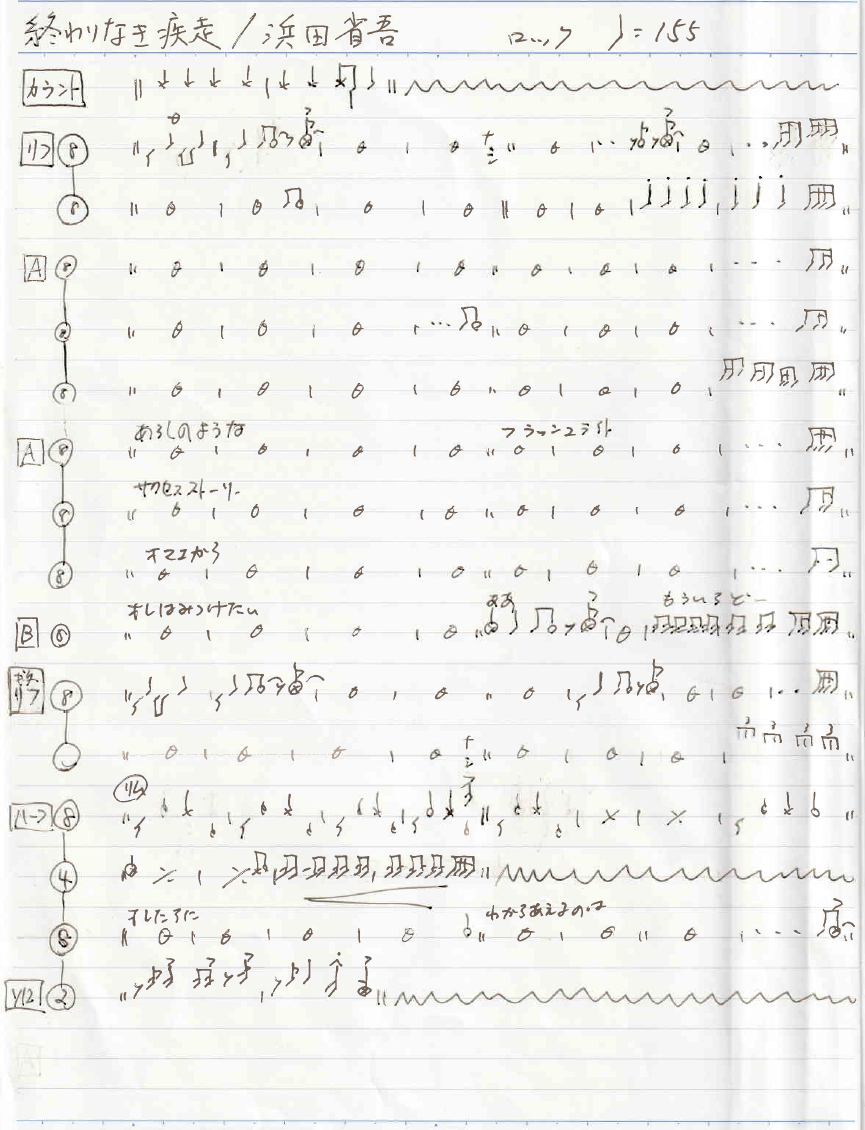 終わりなき疾走/浜田省吾 ロック ♩=155
カウント
リフ 8
8
A 8
8
8
A 8 あらしのような フラッシュライト
8 サクセスストーリー
8 オマエから
B 8 オレはみつけたい ああ もういちどー
リフ 8
ハーフ 8 リム
4
8 オレたちに わかちあえるのは
2